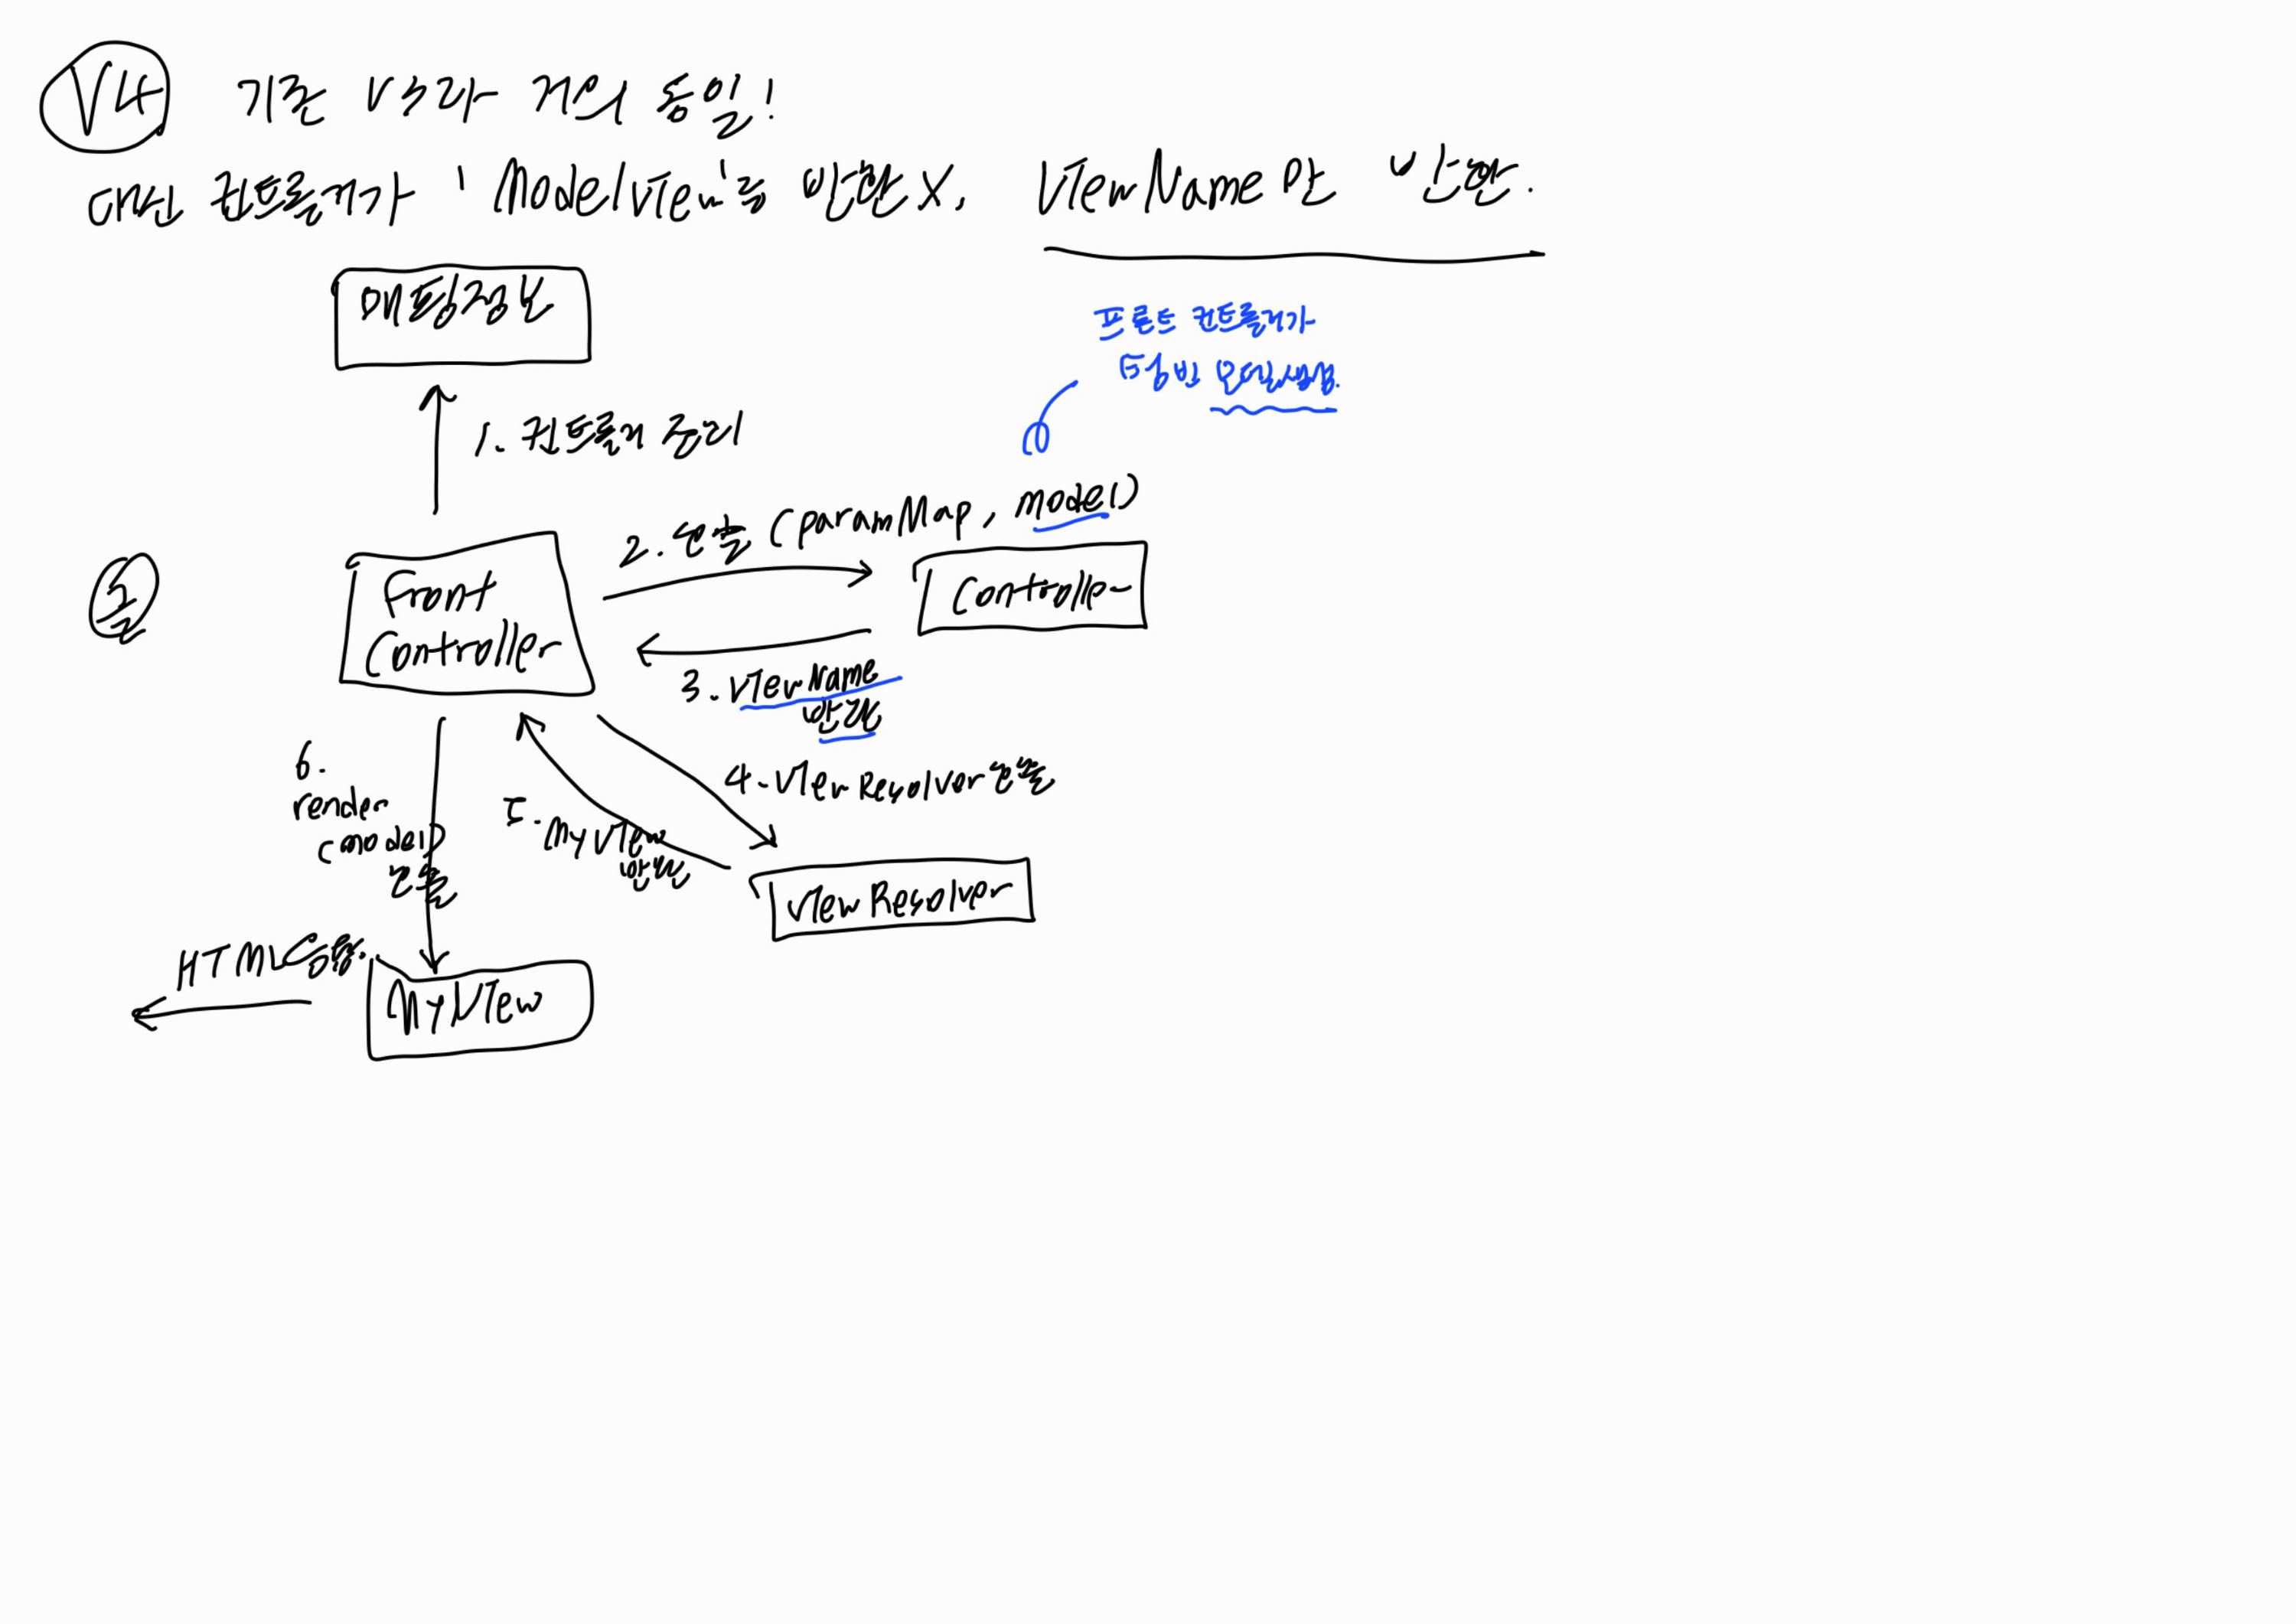 V4 기존 V3과 거의 동일!
대신 컨트롤러가 'ModelView'를 반환 X. ViewName만 반환.
매핑정보
프론트 컨트롤러가
텅 빈 모델생성.
1. 컨트롤러 조회
2. 호출 (paramMap, model)
Front
Controller
Controller
3. ViewName
반환
4. ViewResolver 호출
5. MyView
반환
6.
render
(model)
호출
ViewResolver
HTML응답.
MyView